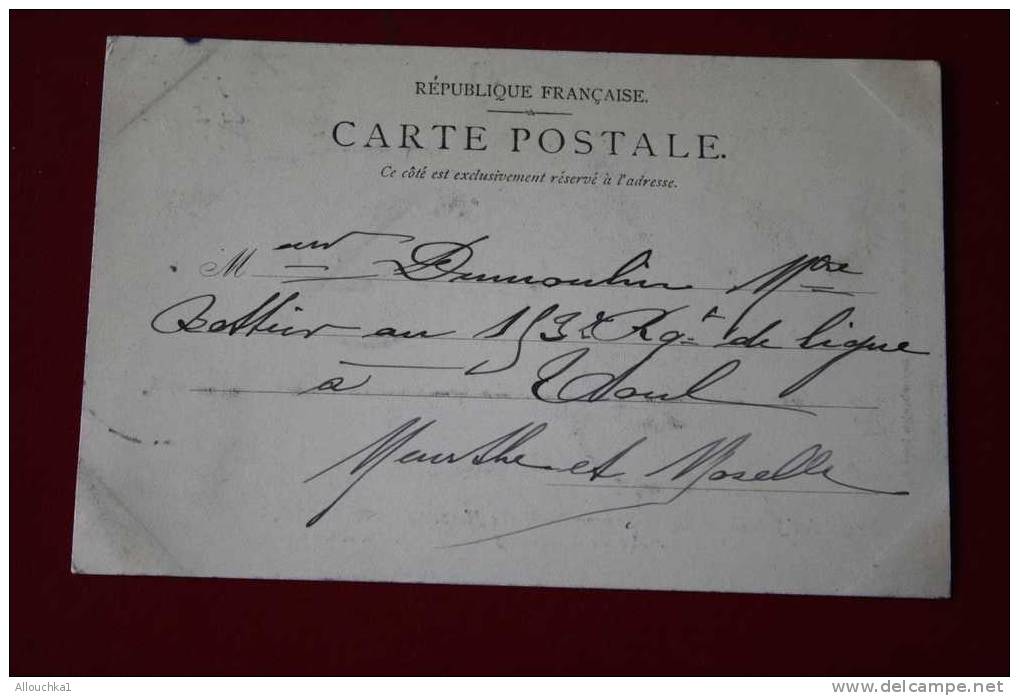 RÉPUBLIQUE FRANÇAISE.
CARTE POSTALE.
Ce côté est exclusivement réservé à l'adresse.
Meur Dumoulin Mtre
Bottier au 153e Rgt de ligne
à Toul
Meurthe et Moselle
Allouchka1
delcampe.net